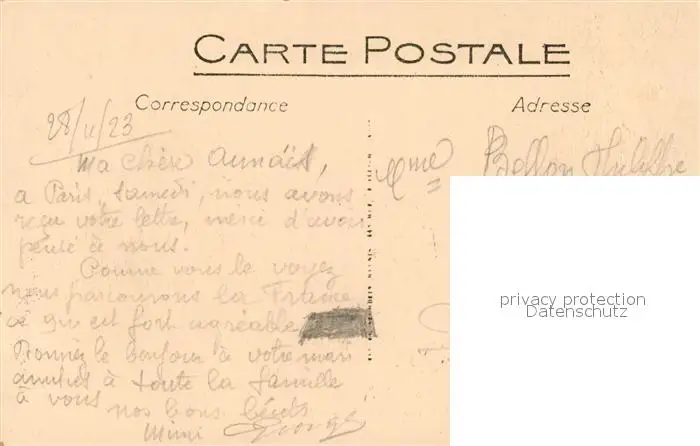 CARTE POSTALE
Correspondance
Adresse
28/ /23
Ma chère
Mme Bellon
à Paris, Samedi, nous avons
reçu votre lettre, merci d'avoir
pensé à nous.
Comme vous le voyez
nous parcourons la France
ce qui est fort agréable
Donnez le bonjour à votre mari
amitiés à toute la famille
à vous nos bons
Mimi George
privacy protection
Datenschutz